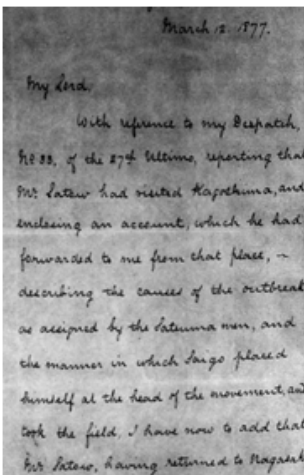 March 12. 1877.
My Lord,
With reference to my Despatch,
No 33, of the 27th Ultimo, reporting that
Mr. Satow had visited Kagoshima, and
enclosing an account, which he had
forwarded to me from that place, –
describing the causes of the outbreak
as assigned by the Satsuma men, and
the manner in which Saigo placed
himself at the head of the movement, and
took the field, I have now to add that
Mr. Satow, having returned to Nagasaki